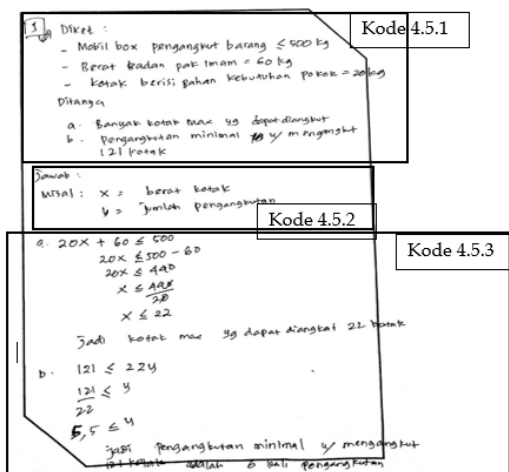 Kode 4.5.1
1 Diket :
- Mobil box pengangkut barang ≤ 500 kg
- Berat Badan pak Imam = 60 kg
- kotak berisi Bahan kebutuhan pokok = 20 kg
Ditanya
a. Banyak kotak max yg dapat diangkut
b. Pengangkutan minimal u/ mengangkut
121 kotak
Jawab :
Misal : x = berat kotak
y = jumlah pengangkutan
Kode 4.5.2
Kode 4.5.3
a. 20x + 60 ≤ 500
20x ≤ 500 - 60
20x ≤ 440
x ≤ 440/20
x ≤ 22
Jadi kotak max yg dapat diangkat 22 kotak
b. 121 ≤ 22y
121/22 ≤ y
5,5 ≤ y
Jadi pengangkutan minimal u/ mengangkut
121 kotak adalah 6 kali pengangkutan